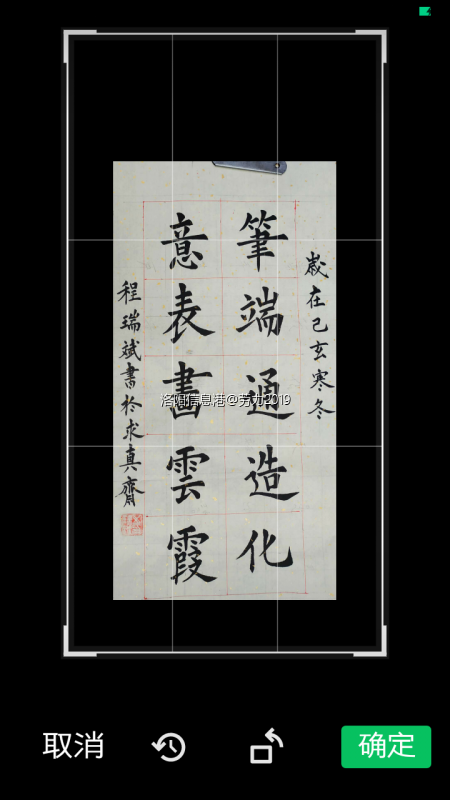 歲在己亥寒冬
筆端通造化
意表書雲霞
程瑞斌書於求真齋
洛阳信息港@劳力2019
取消
确定